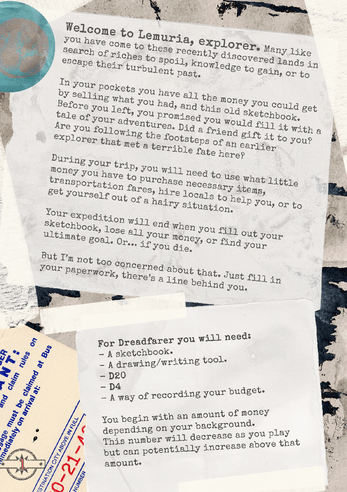 Welcome to Lemuria, explorer. Many like
you have come to these recently discovered lands in
search of riches to spoil, knowledge to gain, or to
escape their turbulent past.
In your pockets you have all the money you could get
by selling what you had, and this old sketchbook.
Before you left, you promised you would fill it with a
tale of your adventures. Did a friend gift it to you?
Are you following the footsteps of an earlier
explorer that met a terrible fate here?
During your trip, you will need to use what little
money you have to purchase necessary items,
transportation fares, hire locals to help you, or to
get yourself out of a hairy situation.
Your expedition will end when you fill out your
sketchbook, lose all your money, or find your
ultimate goal. Or... if you die.
But I'm not too concerned about that. Just fill in
your paperwork, there's a line behind you.
For Dreadfarer you will need:
- A sketchbook.
- A drawing/writing tool.
- D20
- D4
- A way of recording your budget.
You begin with an amount of money
depending on your background.
This number will decrease as you play
but can potentially increase above that
amount.
ANT:
and claim rules on
must be claimed at Bus
mediately on arrival at:
DESTINATION CITY ABOVE IN FULL
0-21-4
NUMBER